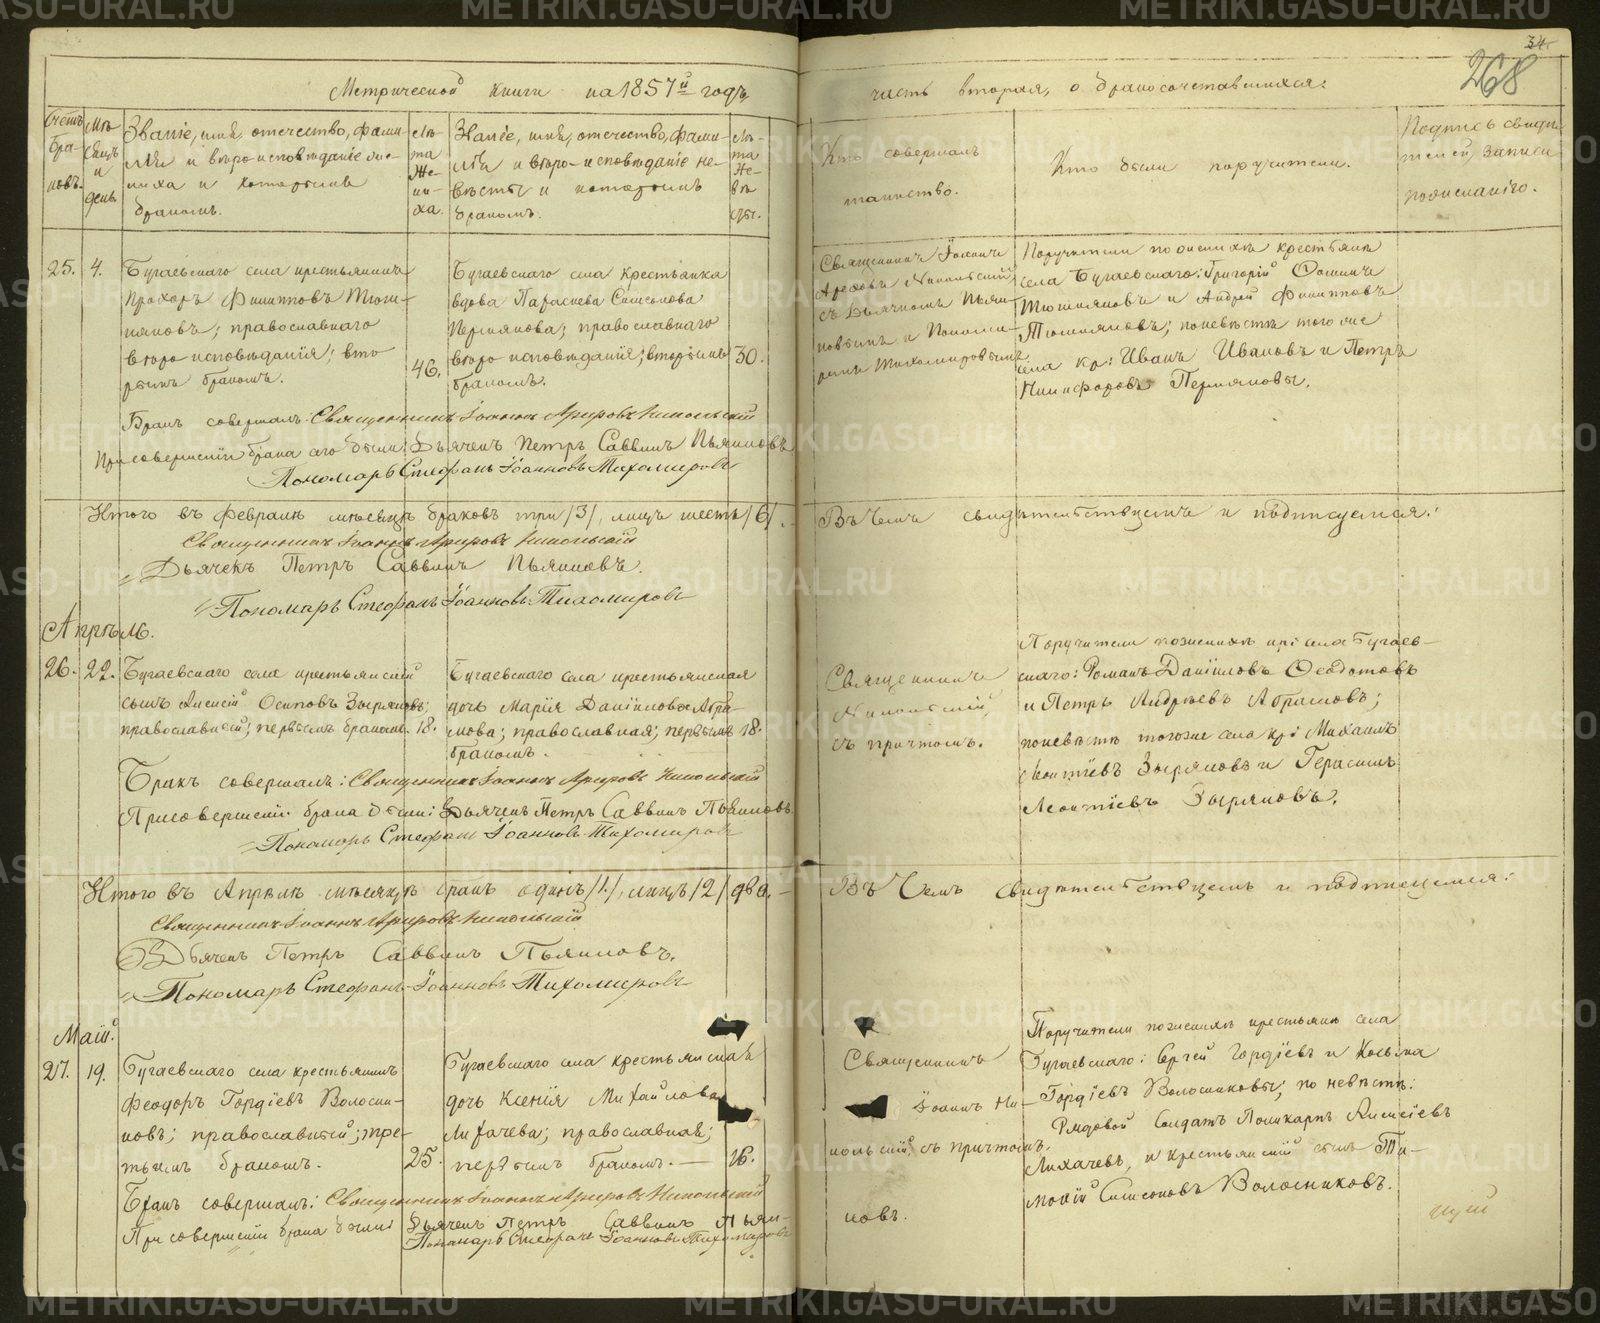 34.
268
Метрической книги на 1857й годъ
часть вторая, о бракосочетавшихся.
Счетъ браковъ.
Мѣсяцъ и день.
Званіе, имя, отечество, фами-
лія и вѣроисповѣданіе же-
ниха и которымъ
бракомъ.
Лѣ-
та
Же-
ни-
ха.
Званіе, имя, отечество, фами-
лія и вѣро-исповѣданіе не-
вѣсты и которымъ
бракомъ.
Лѣ-
та
Не-
вѣ
сты.
Кто совершалъ
таинство.
Кто были поручители.
Подпись свидѣ-
телей записи
по желанію.
25. 4.
Бугаевскаго села крестьянинъ
Прохоръ Филипповъ Тюш-
няковъ; православнаго
вѣроисповѣданія; вто
рымъ бракомъ.
46.
Бугаевскаго села Крестьянка
вдова Параскева Симеонова
Пермякова; православнаго
вѣроисповѣданія; вторымъ
бракомъ.
30.
Священникъ Іоаннъ
Арефовъ Никольскій
съ Дьячкомъ Пьян-
ковымъ и Понома-
ремъ Тихомировымъ
Поручители по женихѣ крестьяне
села Бугаевскаго: Григорій Фоминъ
Тюшняковъ и Андрей Филипповъ
Тюшняковъ; по невѣстѣ того же
села кр: Иванъ Ивановъ и Петръ
Никифоровъ Пермяковы.
Бракъ совершалъ: Священникъ Іоаннъ Арефовъ Никольскій
При совершеніи брака сего были: Дьячекъ Петръ Саввинъ Пьянковъ
Пономарь Стефанъ Іоанновъ Тихомировъ
Итого въ Февралѣ мѣсяцѣ браковъ три /3/, лицъ шесть /6/.
Въ чемъ свидѣтельствуемъ и подписуемся:
Священникъ Іоаннъ Арефовъ Никольскій
Дьячекъ Петръ Саввинъ Пьянковъ.
Пономарь Стефанъ Іоанновъ Тихомировъ
Апрѣль.
26. 22.
Бугаевскаго села крестьянскій
сынъ Алексій Осиповъ Зыряновъ;
православный; первымъ бракомъ.
18.
Бугаевскаго села крестьянская
дочь Марія Даніилова Абра-
мова; православная; первымъ
бракомъ.
18.
Священникъ
Никольскій,
съ причтомъ.
Поручители по женихѣ кр: села Бугаев-
скаго: Романъ Даніиловъ Ѳедотовъ
и Петръ Андреевъ Абрамовъ;
по невѣстѣ тогоже села кр: Михаилъ
Леонтіевъ Зыряновъ и Герасимъ
Леонтіевъ Зыряновъ.
Бракъ совершалъ: Священникъ Іоаннъ Арефовъ Никольскій
При совершеніи брака были: Дьячекъ Петръ Саввинъ Пьянковъ
Пономарь Стефанъ Іоанновъ Тихомировъ
Итого въ Апрѣлѣ мѣсяцѣ бракъ одинъ /1/, лицъ /2/ два.
Въ чемъ свидѣтельствуемъ и подписуемся:
Священникъ Іоаннъ Арефовъ Никольскій
Дьячекъ Петръ Саввинъ Пьянковъ.
Пономарь Стефанъ Іоанновъ Тихомировъ
Маій.
27. 19.
Бугаевскаго села крестьянинъ
Феодоръ Гордіевъ Волосни-
ковъ; православный; тре-
тьимъ бракомъ.
25.
Бугаевскаго села крестьянская
дочь Ксенія Михайлова
Лихачева; православная;
первымъ бракомъ.
16.
Священникъ
Іоаннъ Ни-
кольскій, съ причтомъ.
Поручители по женихѣ крестьяне села
Бугаевскаго: Сергей Гордіевъ и Косьма
Гордіевъ Волосниковы; по невѣстѣ:
Рядовой Солдатъ Поликарпъ Алексіевъ
Лихачевъ, и крестьянскій сынъ Ти-
моѳій Симеоновъ Волосниковъ.
Бракъ совершалъ: Священникъ Іоаннъ Арефовъ Никольскій
При совершеніи брака были: Дьячекъ Петръ Саввинъ Пьян-
ковъ.
Пономарь Стефанъ Іоанновъ Тихомировъ
METRIKI.GASO-URAL.RU